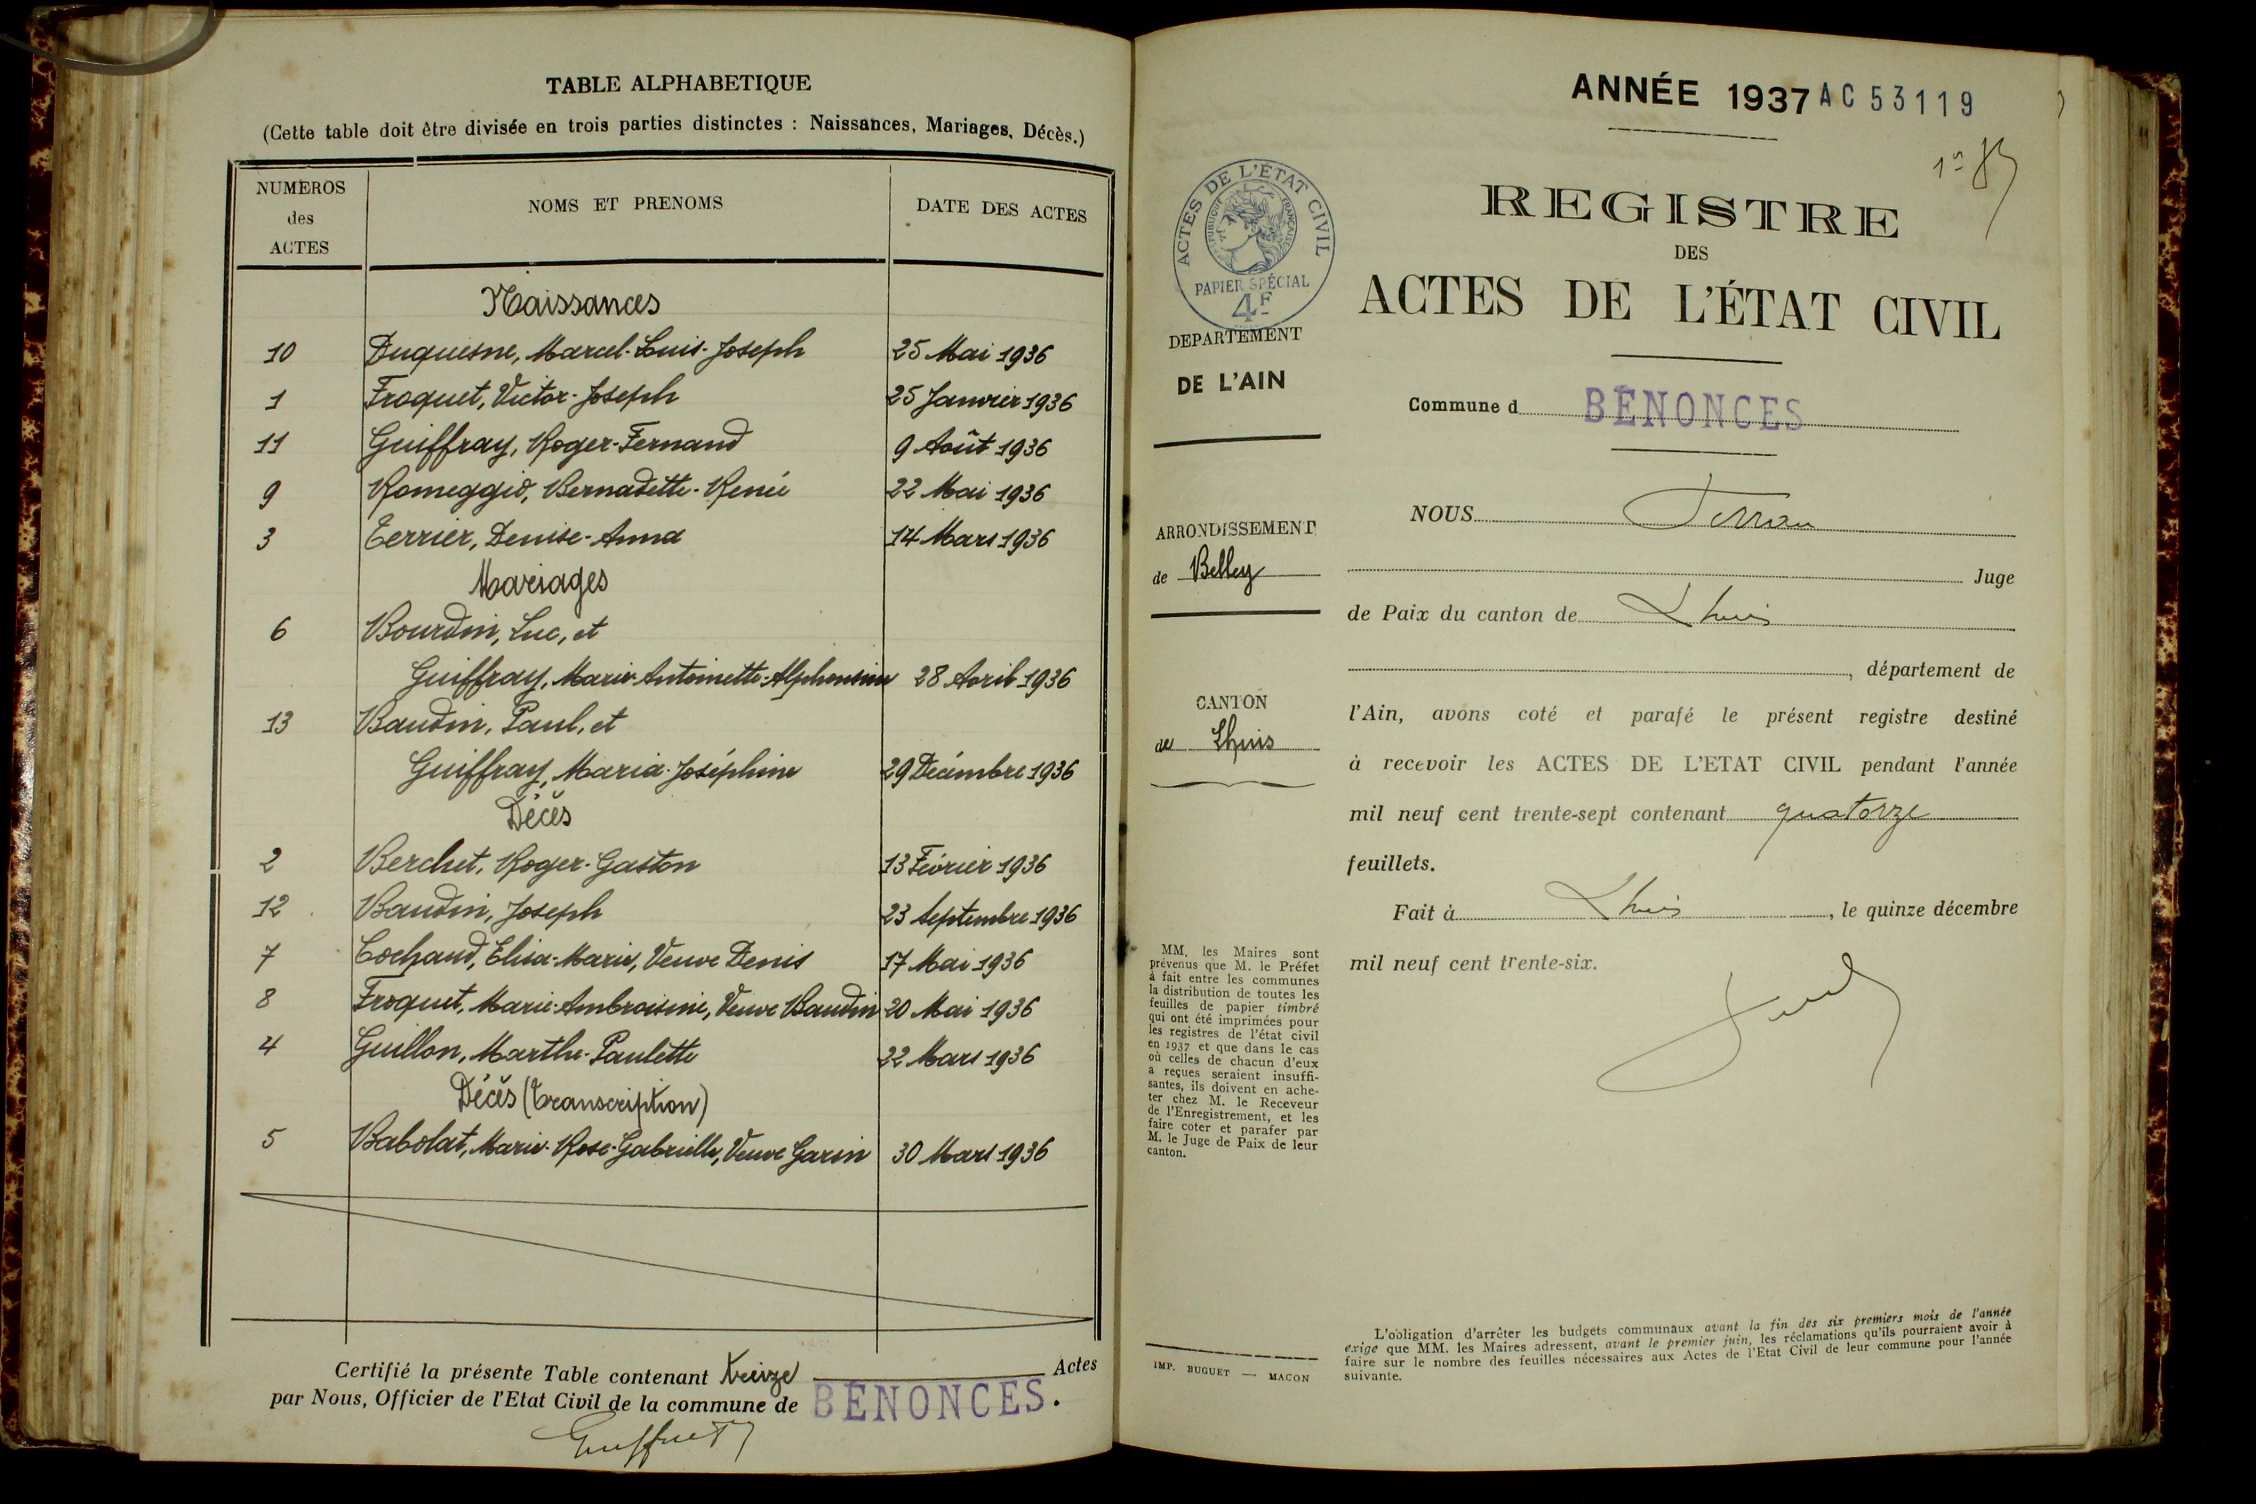 TABLE ALPHABETIQUE
(Cette table doit être divisée en trois parties distinctes : Naissances, Mariages, Décès.)
NUMEROS des ACTES
NOMS ET PRENOMS
DATE DES ACTES
Naissances
10 Duquesne, Marcel-Louis-Joseph 25 Mai 1936
1 Froquet, Victor-Joseph 25 Janvier 1936
11 Guiffray, Roger-Fernand 9 Août 1936
9 Romeggio, Bernadette-Renée 22 Mai 1936
3 Terrier, Denise-Anna 14 Mars 1936
Mariages
6 Bourdin, Luc, et
Guiffray, Marie-Antoinette-Alphonsine 28 Avril 1936
13 Baudin, Paul, et
Guiffray, Maria-Joséphine 29 Décembre 1936
Décès
2 Berchet, Roger-Gaston 13 Février 1936
12 Baudin, Joseph 23 Septembre 1936
7 Cochand, Elisa-Marie, Veuve Denis 17 Mai 1936
8 Froquet, Marie-Ambroisine, Veuve Baudin 20 Mai 1936
4 Guillon, Marthe-Paulette 22 Mars 1936
Décès (transcription)
5 Babolat, Marie-Rose-Gabrielle, Veuve Garin 30 Mars 1936
Certifié la présente Table contenant treize Actes
par Nous, Officier de l'Etat Civil de la commune de BÉNONCES.
ANNÉE 1937 AC 53119
ACTES DE L'ÉTAT CIVIL
RÉPUBLIQUE FRANÇAISE
PAPIER SPÉCIAL
4F
DEPARTEMENT
DE L'AIN
ARRONDISSEMENT
de Belley
CANTON
de Lhuis
MM. les Maires sont
prévenus que M. le Préfet
a fait entre les communes
la distribution de toutes les
feuilles de papier timbré
qui ont été imprimées pour
les registres de l'état civil
en 1937 et que dans le cas
où celles de chacun d'eux
a reçues seraient insuffi-
santes, ils doivent en ache-
ter chez M. le Receveur
de l'Enregistrement, et les
faire coter et parafer par
M. le Juge de Paix de leur
canton.
IMP. BUGUET — MACON
REGISTRE
DES
ACTES DE L'ÉTAT CIVIL
Commune d BÉNONCES
NOUS
Juge
de Paix du canton de Lhuis
, département de
l'Ain, avons coté et parafé le présent registre destiné
à recevoir les ACTES DE L'ETAT CIVIL pendant l'année
mil neuf cent trente-sept contenant quatorze
feuillets.
Fait à Lhuis, le quinze décembre
mil neuf cent trente-six.
L'obligation d'arrêter les budgets communaux avant la fin des six premiers mois de l'année
exige que MM. les Maires adressent, avant le premier juin, les réclamations qu'ils pourraient avoir à
faire sur le nombre des feuilles nécessaires aux Actes de l'Etat Civil de leur commune pour l'année
suivante.